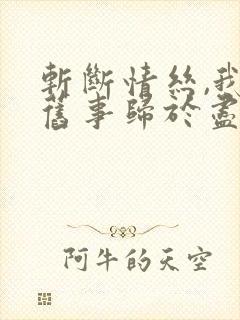 斬斷情絲,我
舊事歸於盡
阿牛的天空